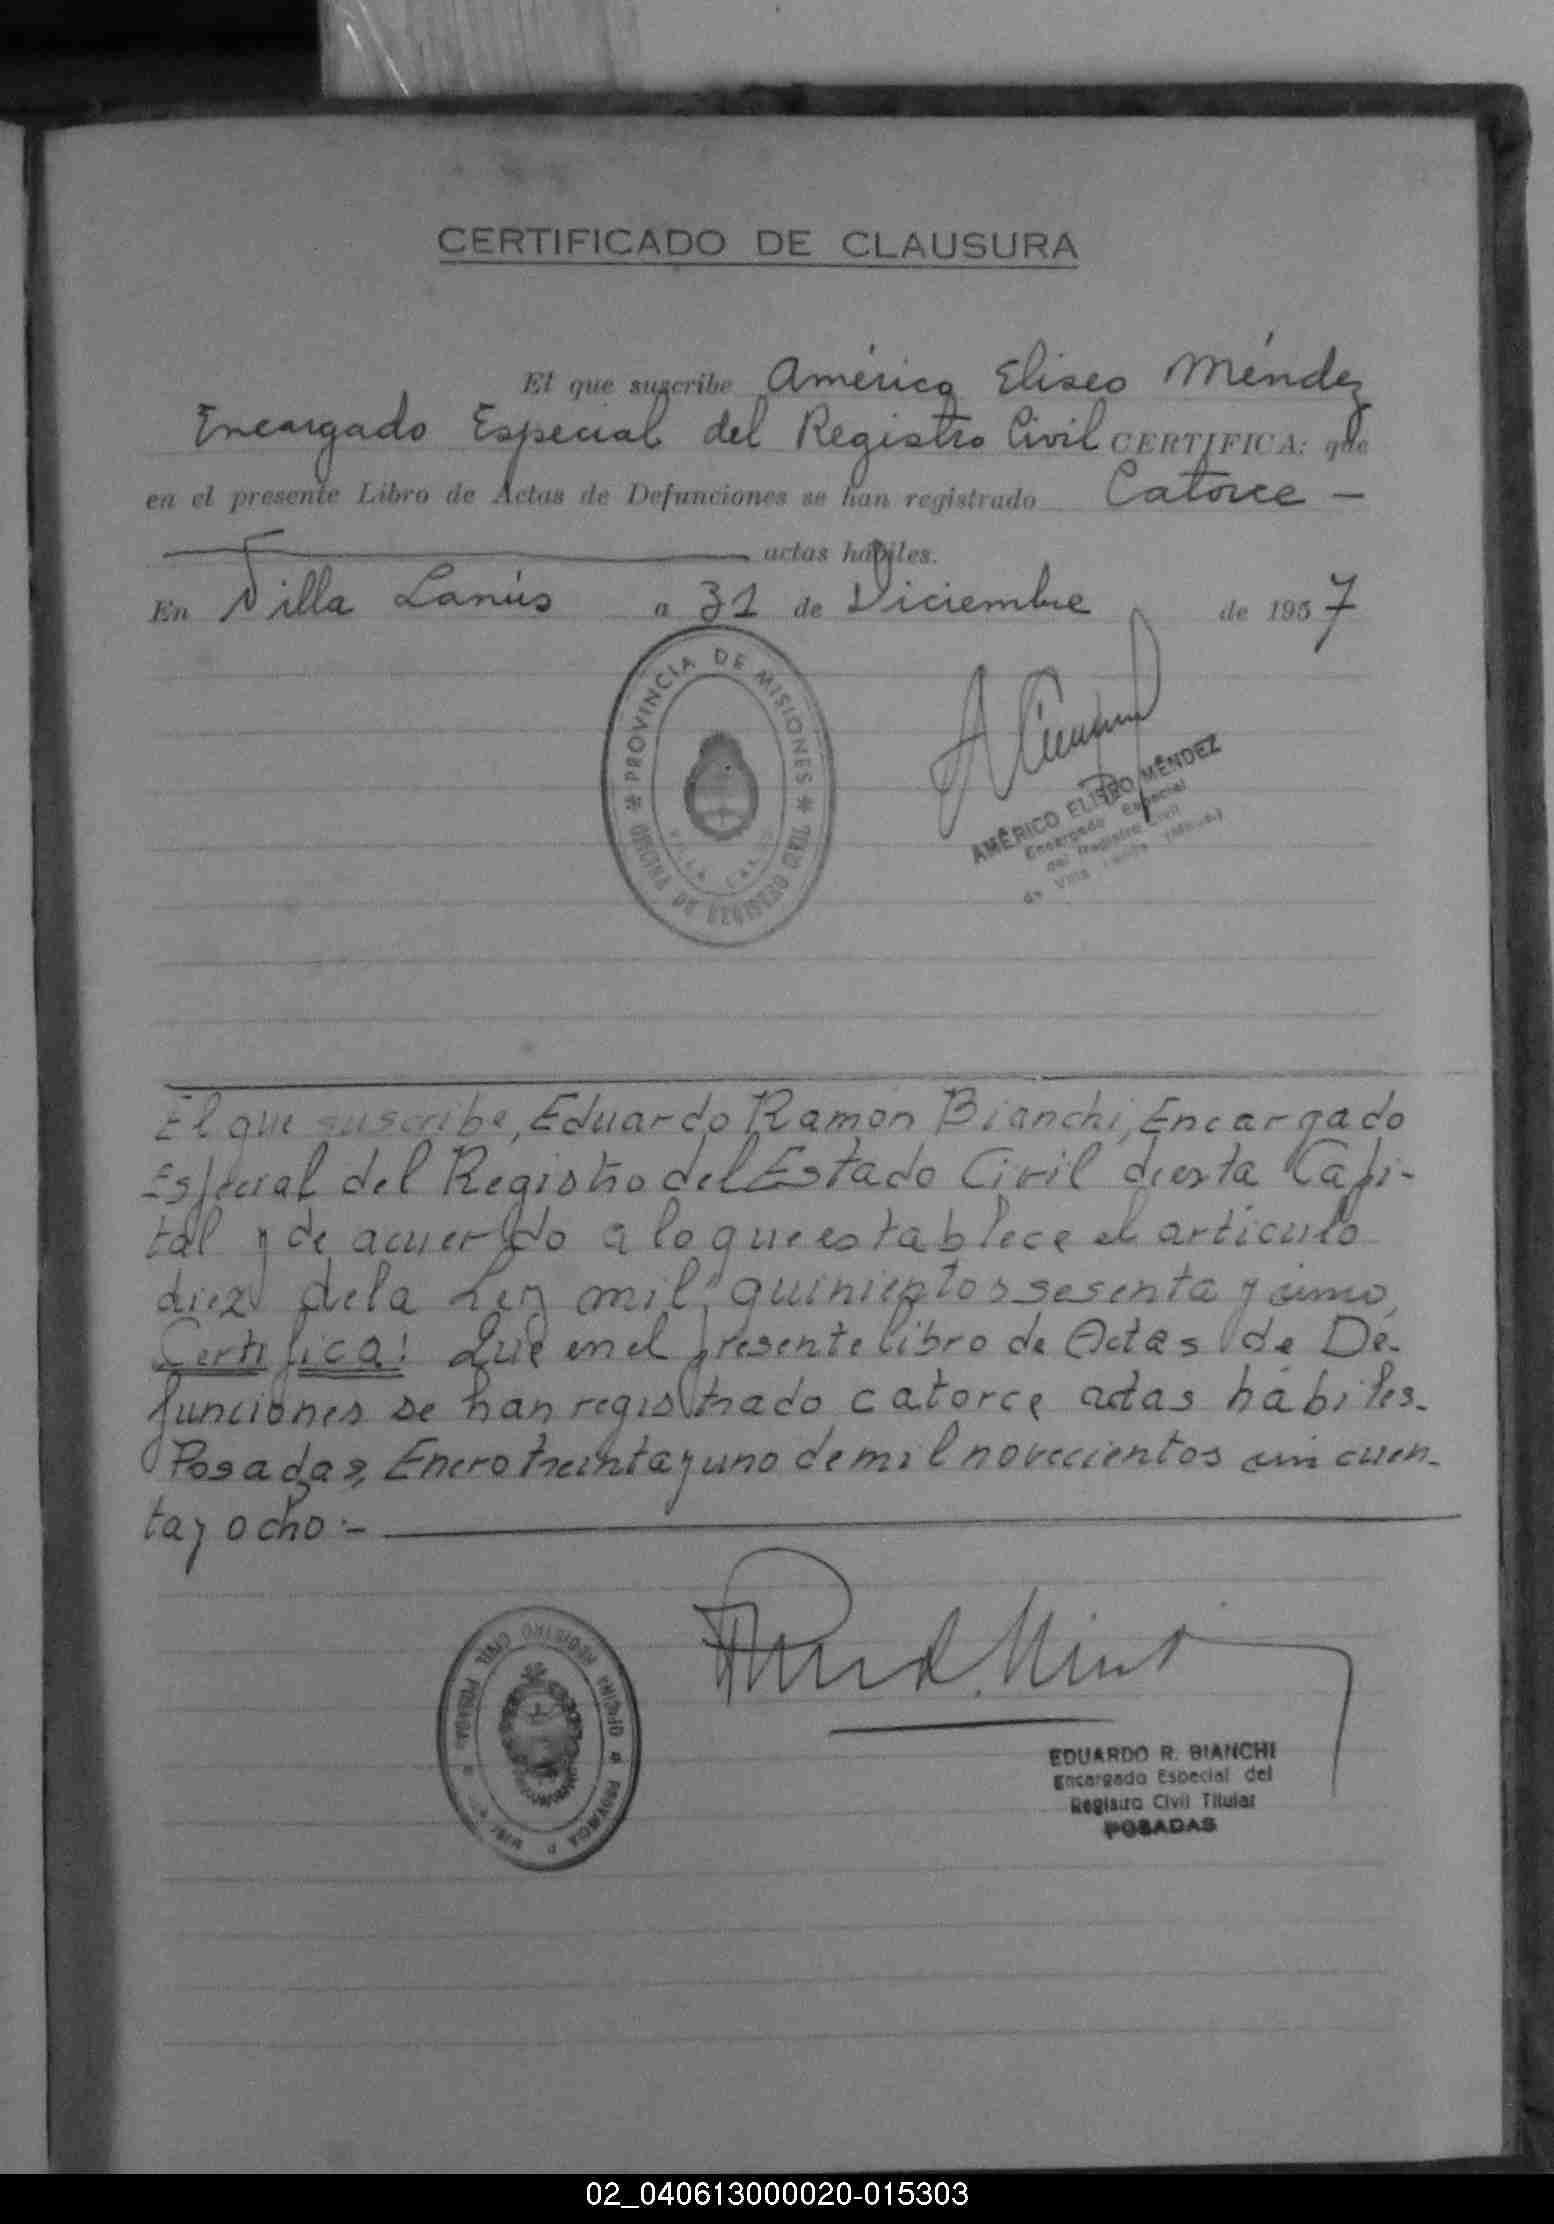 CERTIFICADO DE CLAUSURA
El que suscribe Américo Eliseo Méndez
Encargado Especial del Registro Civil CERTIFICA: que
en el presente Libro de Actas de Defunciones se han registrado Catorce —
actas hábiles.
En Villa Lanús a 31 de Diciembre de 1957
PROVINCIA DE MISIONES
OFICINA DE REGISTRO CIVIL
VILLA LANUS
AMÉRICO ELISEO MÉNDEZ
Encargado Especial
del Registro Civil
de Villa Lanús
El que suscribe, Eduardo Ramón Bianchi, Encargado
Especial del Registro del Estado Civil de esta Capi-
tal y de acuerdo a lo que establece el articulo
diez de la Ley mil quinientos sesenta y cinco,
Certifica: Que en el presente libro de Actas de De-
funciones se han registrado catorce actas hábiles.
Posadas, Enero treinta y uno de mil novecientos cincuen-
ta y ocho.-
OFICINA REGISTRO CIVIL POSADAS
PROVINCIA
EDUARDO R. BIANCHI
Encargado Especial del
Registro Civil Titular
POSADAS
02_040613000020-015303